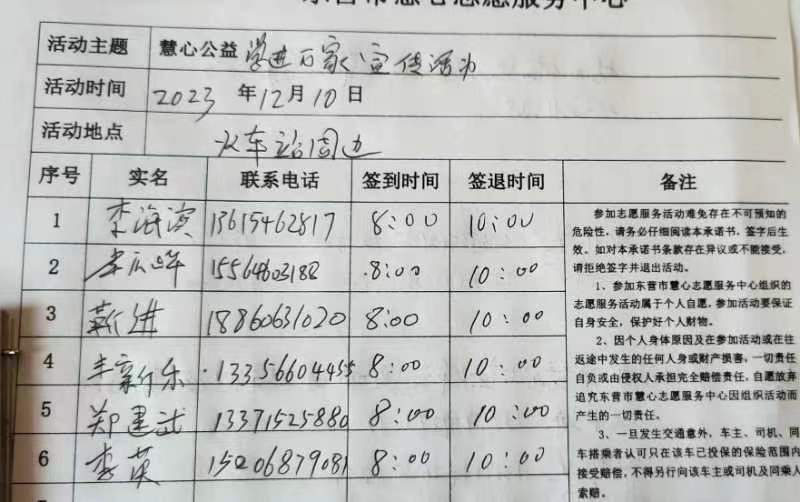 东营市慧心志愿服务中心
活动主题 慧心公益 学进万家宣传活动
活动时间 2023 年 12 月 10 日
活动地点 火车站周边
序号 实名 联系电话 签到时间 签退时间 备注
1 李海滨 13615462817 8:00 10:00
2 15564603188 8:00 10:00
3 靳进 18860631020 8:00 10:00
4 丰新乐 13356604455 8:00 10:00
5 郑建武 13371525880 8:00 10:00
6 李英 15206879081 8:00 10:00
参加志愿服务活动难免存在不可预知的
危险性,请务必仔细阅读本承诺书,签字后生
效。如对本承诺书条款存在异议或不能接受,
请拒绝签字并退出活动。
1、参加东营市慧心志愿服务中心组织的
志愿服务活动属于个人自愿,参加活动要保证
自身安全,保护好个人财物。
2、因个人身体原因及在参加活动或在往
返途中发生的任何人身或财产损害,一切责任
自负或由侵权人承担完全赔偿责任,自愿放弃
追究东营市慧心志愿服务中心因组织活动而
产生的一切责任。
3、一旦发生交通意外,车主、司机、同
车搭乘者认可只在该车已投保的保险范围内
接受赔偿,不得另行向该车主或司机及同乘人
索赔。